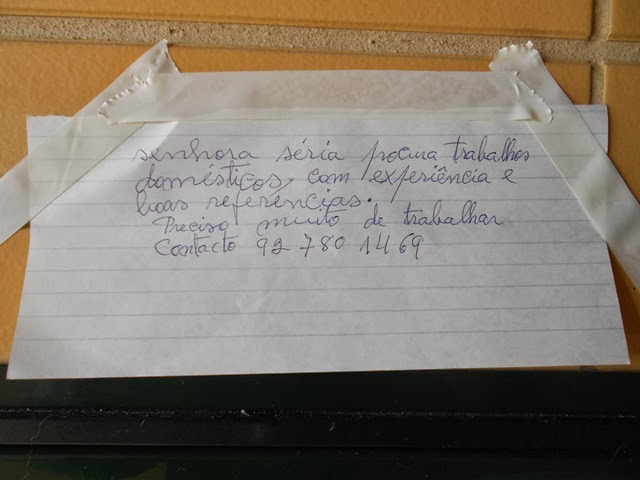 senhora séria procura trabalhos
domésticos, com experiência e
boas referencias.
Preciso muito de trabalhar
Contacto 92 780 1469